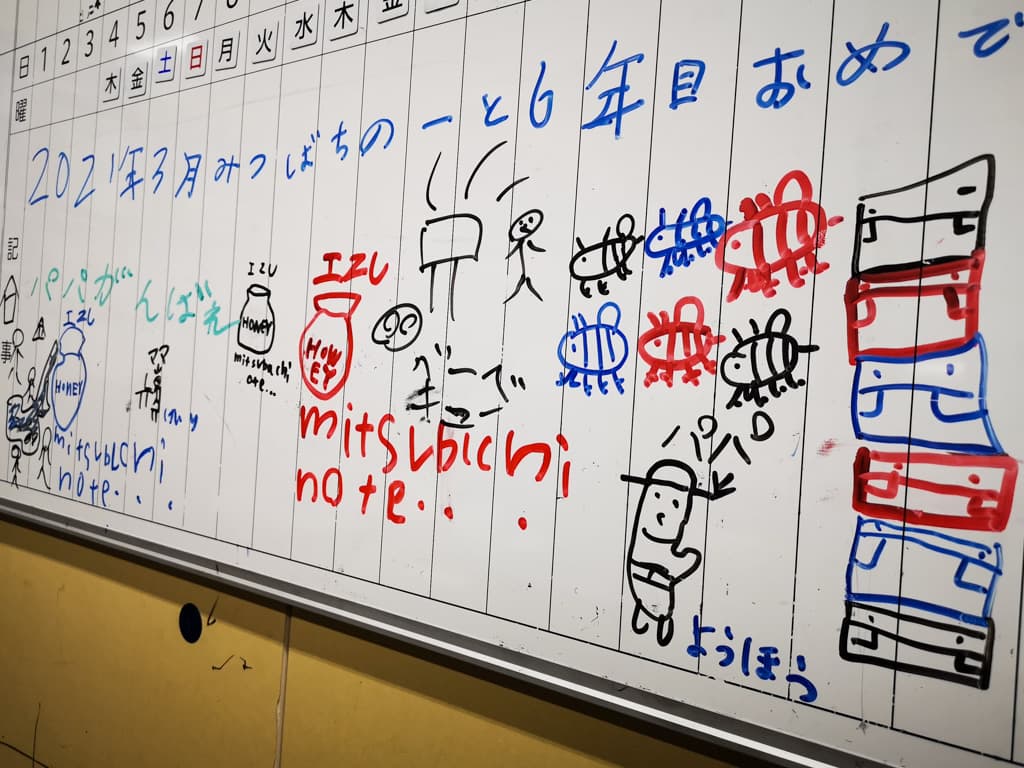 日 1 2 3 4 5 6 7
曜 木 金 土 日 月 火 水 木 金
2021年3月みつばちのーと6年目おめで
記
事
パパがんばれ
IZU
HONEY
mitsubachi
note...
ママ
IZU
HONEY
mitsubachi
ote...
IZU
HONEY
mitsubachi
note...
パパ
ようほう